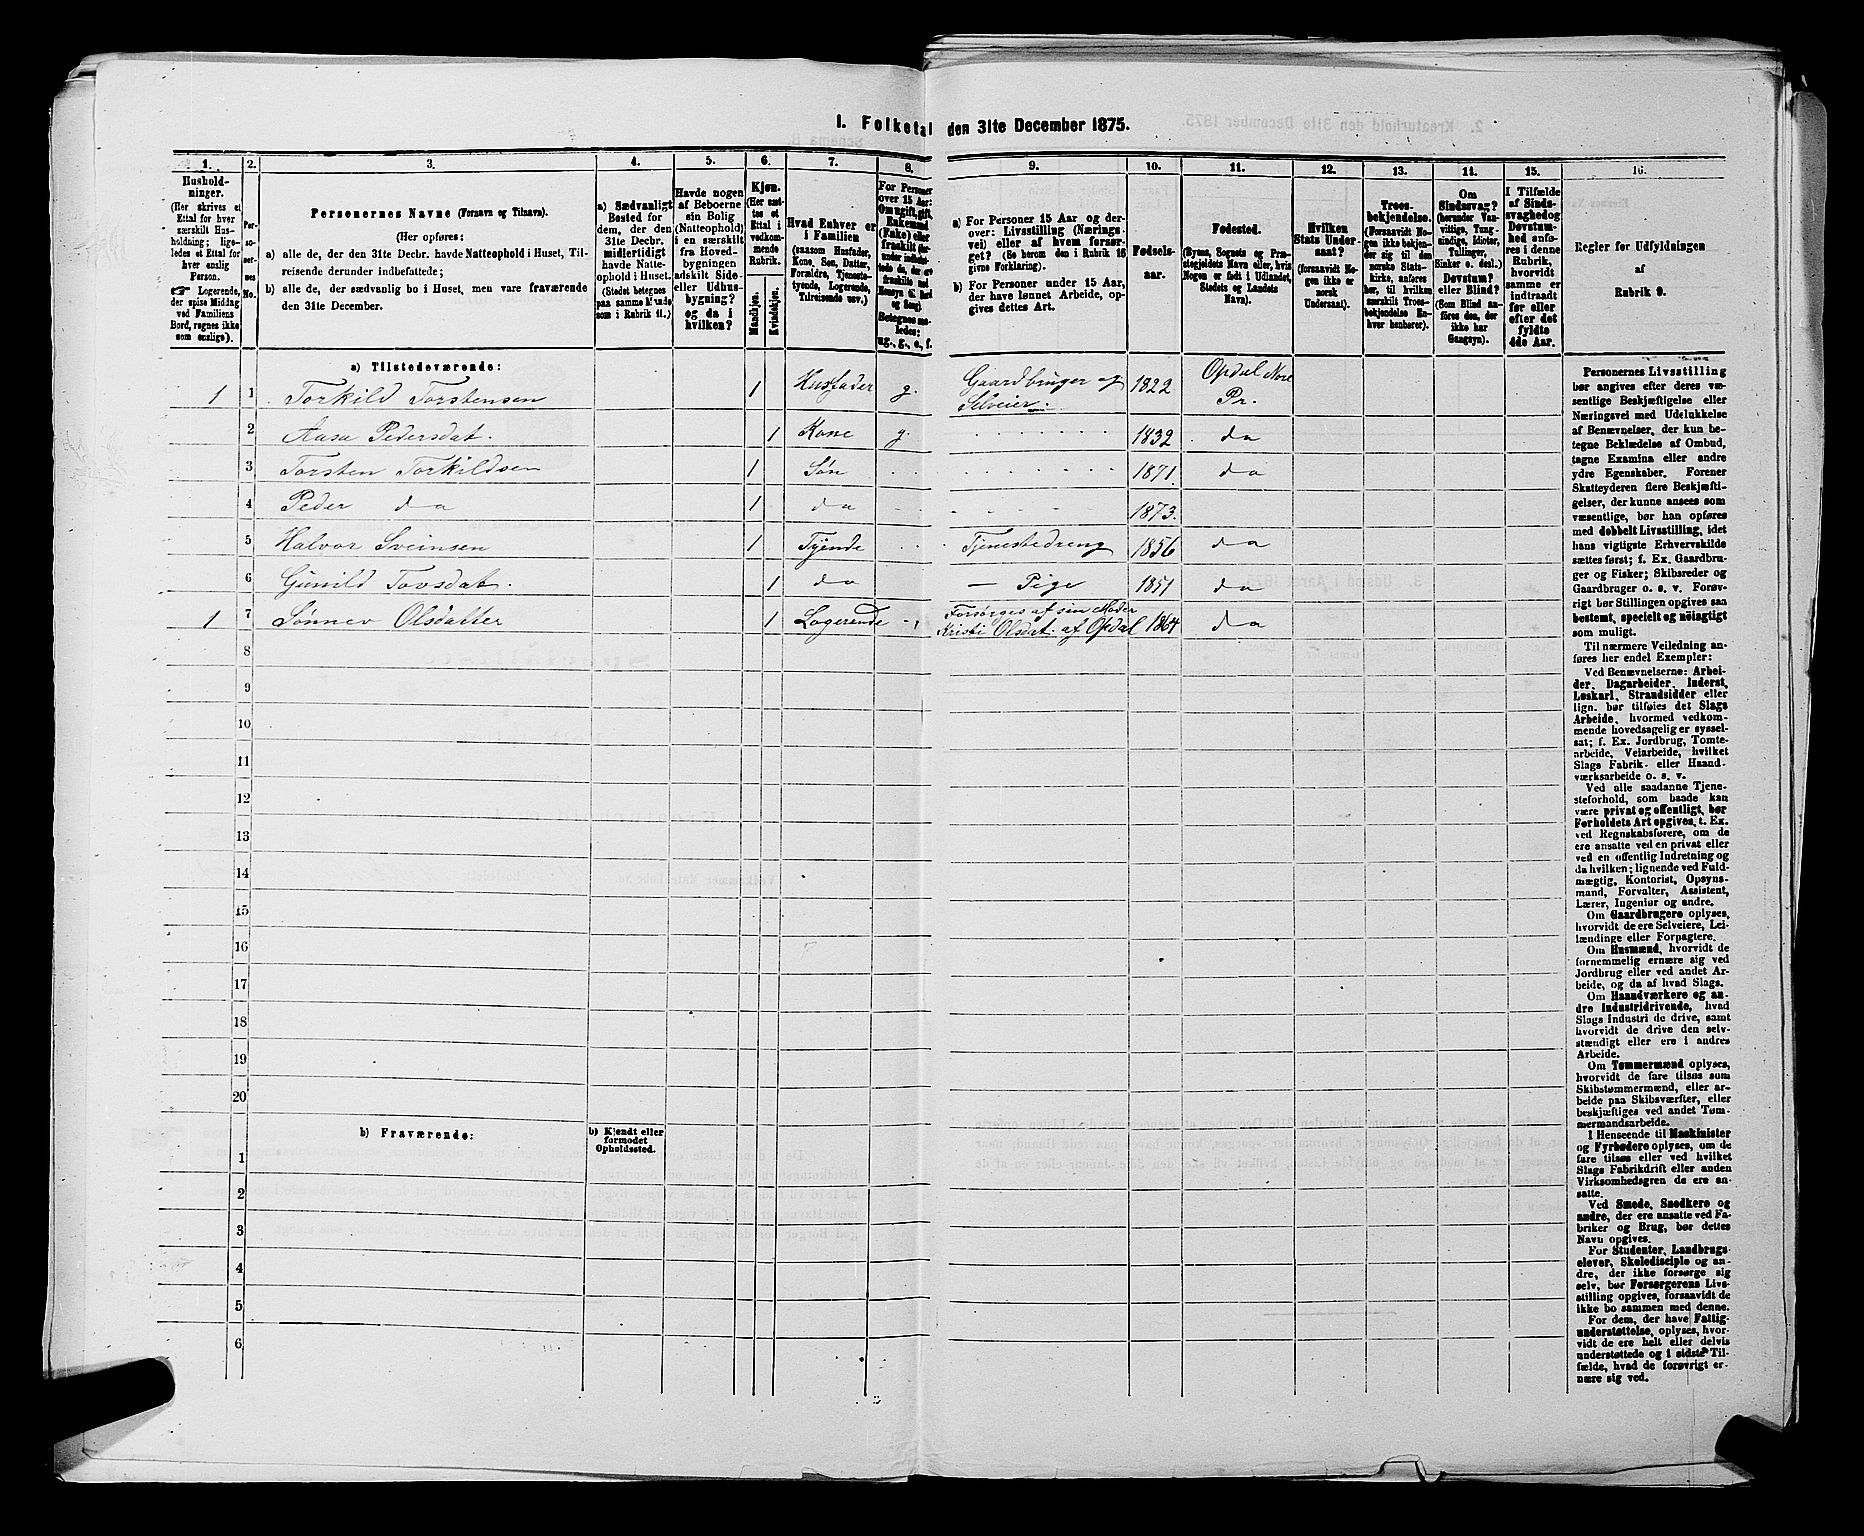 1. Folketal den 31te December 1875.
1.
2.
3.
4.
5.
6.
7.
8.
9.
10.
11.
12.
13.
14.
15.
16.
Hushold-
ninger.
(Her skrives et
Ettal for hver
særskilt Hus-
holdning; lige-
ledes et Ettal for
hver enslig
Person.
☛ Logerende,
der spise Middag
ved Familiens
Bord, regnes ikke
som enslige).
Per-
so-
ner-
nes
No.
Personernes Navne (Fornavn og Tilnavn).
(Her opføres:
a) alle de, der den 31te Decbr. havde Natteophold i Huset, Til-
reisende derunder indbefattede;
b) alle de, der sædvanlig bo i Huset, men vare fraværende
den 31te December.
a) Sædvanligt
Bosted for
dem, der den
31te Decbr.
midlertidigt
havde Natte-
ophold i Huset.
(Stedet betegnes
paa samme Maade
som i Rubrik 11.)
Havde nogen
af Beboerne
sin Bolig
(Natteophold)
i en særskilt
fra Hoved-
bygningen
adskilt Side-
eller Udhus-
bygning?
og da i
hvilken?
Kjøn.
(Her sæt-
tes et
Ettal i
vedkom-
mende
Rubrik.
Mandkjøn.
Kvindekjøn.
Hvad Enhver er
i Familien
(saasom Husfader,
Kone, Søn, Datter,
Forældre, Tjeneste-
tyende, Logerende,
Tilreisende osv.)
For Personer
over 15 Aar:
Om ugift, gift,
Enkemand
(Enke) eller
fraskilt
Betegnes saa-
ledes:
ug., g., e., f.
a) For Personer 15 Aar og der-
over: Livsstilling (Nærings-
vei) eller af hvem forsør-
get? (Se herom den i Rubrik 16
givne Forklaring).
b) For Personer under 15 Aar,
der have lønnet Arbeide, op-
gives dettes Art.
Fødsels-
aar.
Fødested.
(Byens, Sognets og Præ-
stegjeldets Navn eller, hvis
Nogen er født i Udlandet,
Stedets og Landets
Navn).
Hvilken
Stats Under-
saat?
(forsaavidt No-
gen ikke er
norsk
Undersaat).
Troes-
bekjendelse.
(Forsaavidt No-
gen ikke bekjen-
der sig til den
norske Stats-
kirke, anføres
her, til hvilken
særskilt Troes-
bekjendelse En-
hver henhører).
Om
Sindssvag?
(herunder Van-
vittige, Tung-
sindige, Idioter,
Tullinger,
Sinker o. desl.)
Døvstum?
eller Blind?
(Som Blind an-
føres den, der
ikke har
Gangsyn).
I Tilfælde
af Sinds-
svaghed og
Døvstum-
hed anfø-
res i denne
Rubrik,
hvorvidt
samme er
indtraadt
før eller
efter det
fyldte
4de Aar.
Regler for Udfyldningen
af
Rubrik 9.
a) Tilstedeværende:
1 1 Torkild Torstensen 1 Husfader g. Gaardbruger og Selveier. 1822 Opdal Nore Pr.
2 Aasa Pedersdat. 1 Kone g. 1832 do
3 Torsten Torkildsen 1 Søn 1871. do
4 Peder do 1 do 1873.
5 Halvor Sveinsen 1 Tyende Tjenestedreng 1856 do
6 Gunild Tovsdat. 1 do — Pige 1851 do
1 7 Sønnev Olsdatter 1 Logerende Forsørges af sin Moder Kristi Olsdat. af Opdal 1864 do
8
9
10
11
12
13
14
15
16
17
18
19
20
b) Fraværende:
b) Kjendt eller
formodet
Opholdssted.
1
2
3
4
5
6
Personernes Livsstilling
bør angives efter deres væ-
sentlige Beskjæftigelse eller
Næringsvei med Udelukkelse
af Benævnelser, der kun be-
tegne Beklædelse af Ombud,
tagne Examina eller andre
ydre Egenskaber. Forener
Skatteyderen flere Beskjæfti-
gelser, der kunne ansees som
væsentlige, bør han opføres
med dobbelt Livsstilling, idet
hans vigtigste Erhvervskilde
sættes først; f. Ex. Gaardbru-
ger og Fisker; Skibsreder og
Gaardbruger o. s. v. Forøv-
rigt bør Stillingen opgives saa
bestemt, specielt og nøiagtigt
som muligt.
Til nærmere Veiledning an-
føres her endel Exempler:
Ved Benævnelserne: Arbei-
der, Dagarbeider, Inderst,
Løskarl, Strandsidder eller
lign. bør tilføies det Slags
Arbeide, hvormed vedkom-
mende hovedsagelig er syssel-
sat; f. Ex. Jordbrug, Tomte-
arbeide, Veiarbeide, hvilket
Slags Fabrik- eller Haand-
værksarbeide o. s. v.
Ved alle saadanne Tjene-
steforhold, som baade kan
være privat og offentligt, bør
Forholdets Art opgives, t. Ex.
ved Regnskabsførere, om de
ere ansatte ved en privat eller
ved en offentlig Indretning og
da hvilken; lignende ved Fuld-
mægtig, Kontorist, Opsyns-
mand, Forvalter, Assistent,
Lærer, Ingeniør og andre.
Om Gaardbrugere oplyses,
hvorvidt de ere Selveiere, Lei-
lændinge eller Forpagtere.
Om Husmænd, hvorvidt de
fornemmelig ernære sig ved
Jordbrug eller ved andet Ar-
beide, og da af hvad Slags.
Om Haandværkere og an-
dre Industridrivende, hvad
Slags Industri de drive, samt
hvorvidt de drive den selv-
stændigt eller ere i andres
Arbeide.
Om Tømmermænd oplyses,
hvorvidt de fare tilsøs som
Skibstømmermænd, eller ar-
beide paa Skibsværfter, eller
beskjæftiges ved andet Tøm-
mermandsarbeide.
I Henseende til Maskinister
og Fyrbødere oplyses, om de
fare tilsøs eller ved hvilket
Slags Fabrikdrift eller anden
Virksomhedsgren de ere an-
satte.
Ved Smede, Snedkere og
andre, der ere ansatte ved Fa-
briker og Brug, bør dettes
Navn opgives.
For Studenter, Landbrugs-
elever, Skoledisciple og an-
dre, der ikke forsørge sig
selv, bør Forsørgerens Livs-
stilling opgives, forsaavidt de
ikke bo sammen med denne.
For dem, der have Fattig-
understøttelse, oplyses, hvor-
vidt de ere helt eller delvis
understøttede og i sidste Til-
fælde, hvad de forøvrigt er-
nære sig ved.